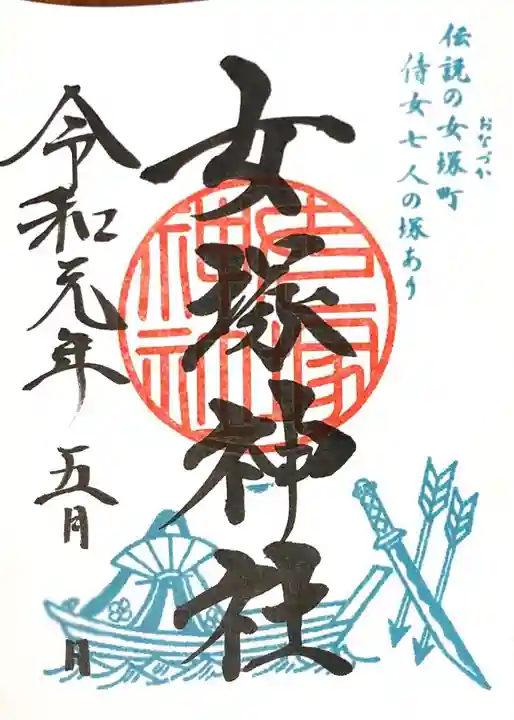 伝説の女塚町
おなづか
侍女七人の塚あり
女塚神社
令和元年 五月 日